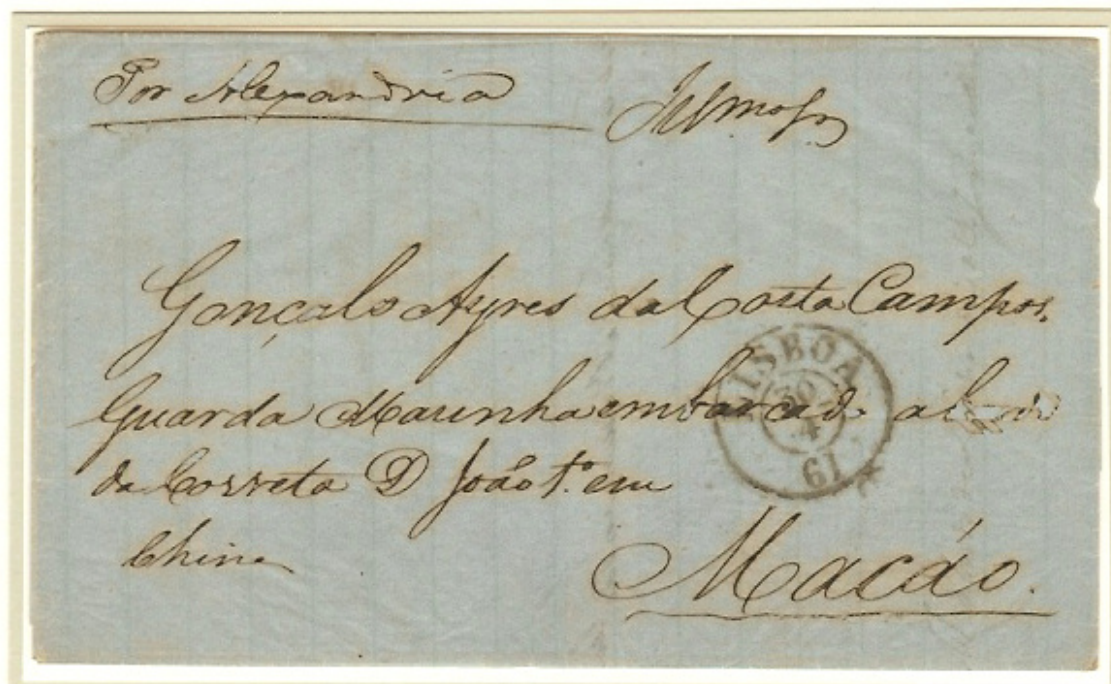 Por Alexandria
Illmo Sr
Gonçalo Ayres da Costa Campos.
Guarda Marinha embarcado a bordo
da Corveta D João 1º em
China
Macáo.
LISBOA
30
4
61